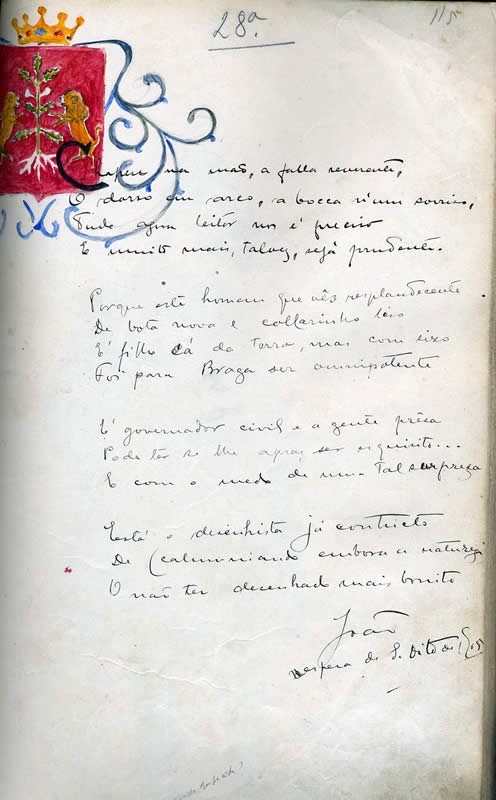 28ª.
115
Chapeu na mão, a falla reverente,
O dorso em arco, a bocca n'um sorriso,
Tudo agora leitor nos é preciso
E muito mais, talvez, seja prudente.
Porque este homem que vês resplandecente
De bota nova e collarinho liso
É filho cá da terra, mas com sizo
Foi para Braga ser omnipotente
É governador civil e a gente prêsa
Pode ter se lhe apraz ser esquisito...
E com o medo de uma tal surpreza
Está o desenhista já contricto
De (calumniando embora a natureza
O não ter desenhado mais bonito
João
vespera de S. Dito de